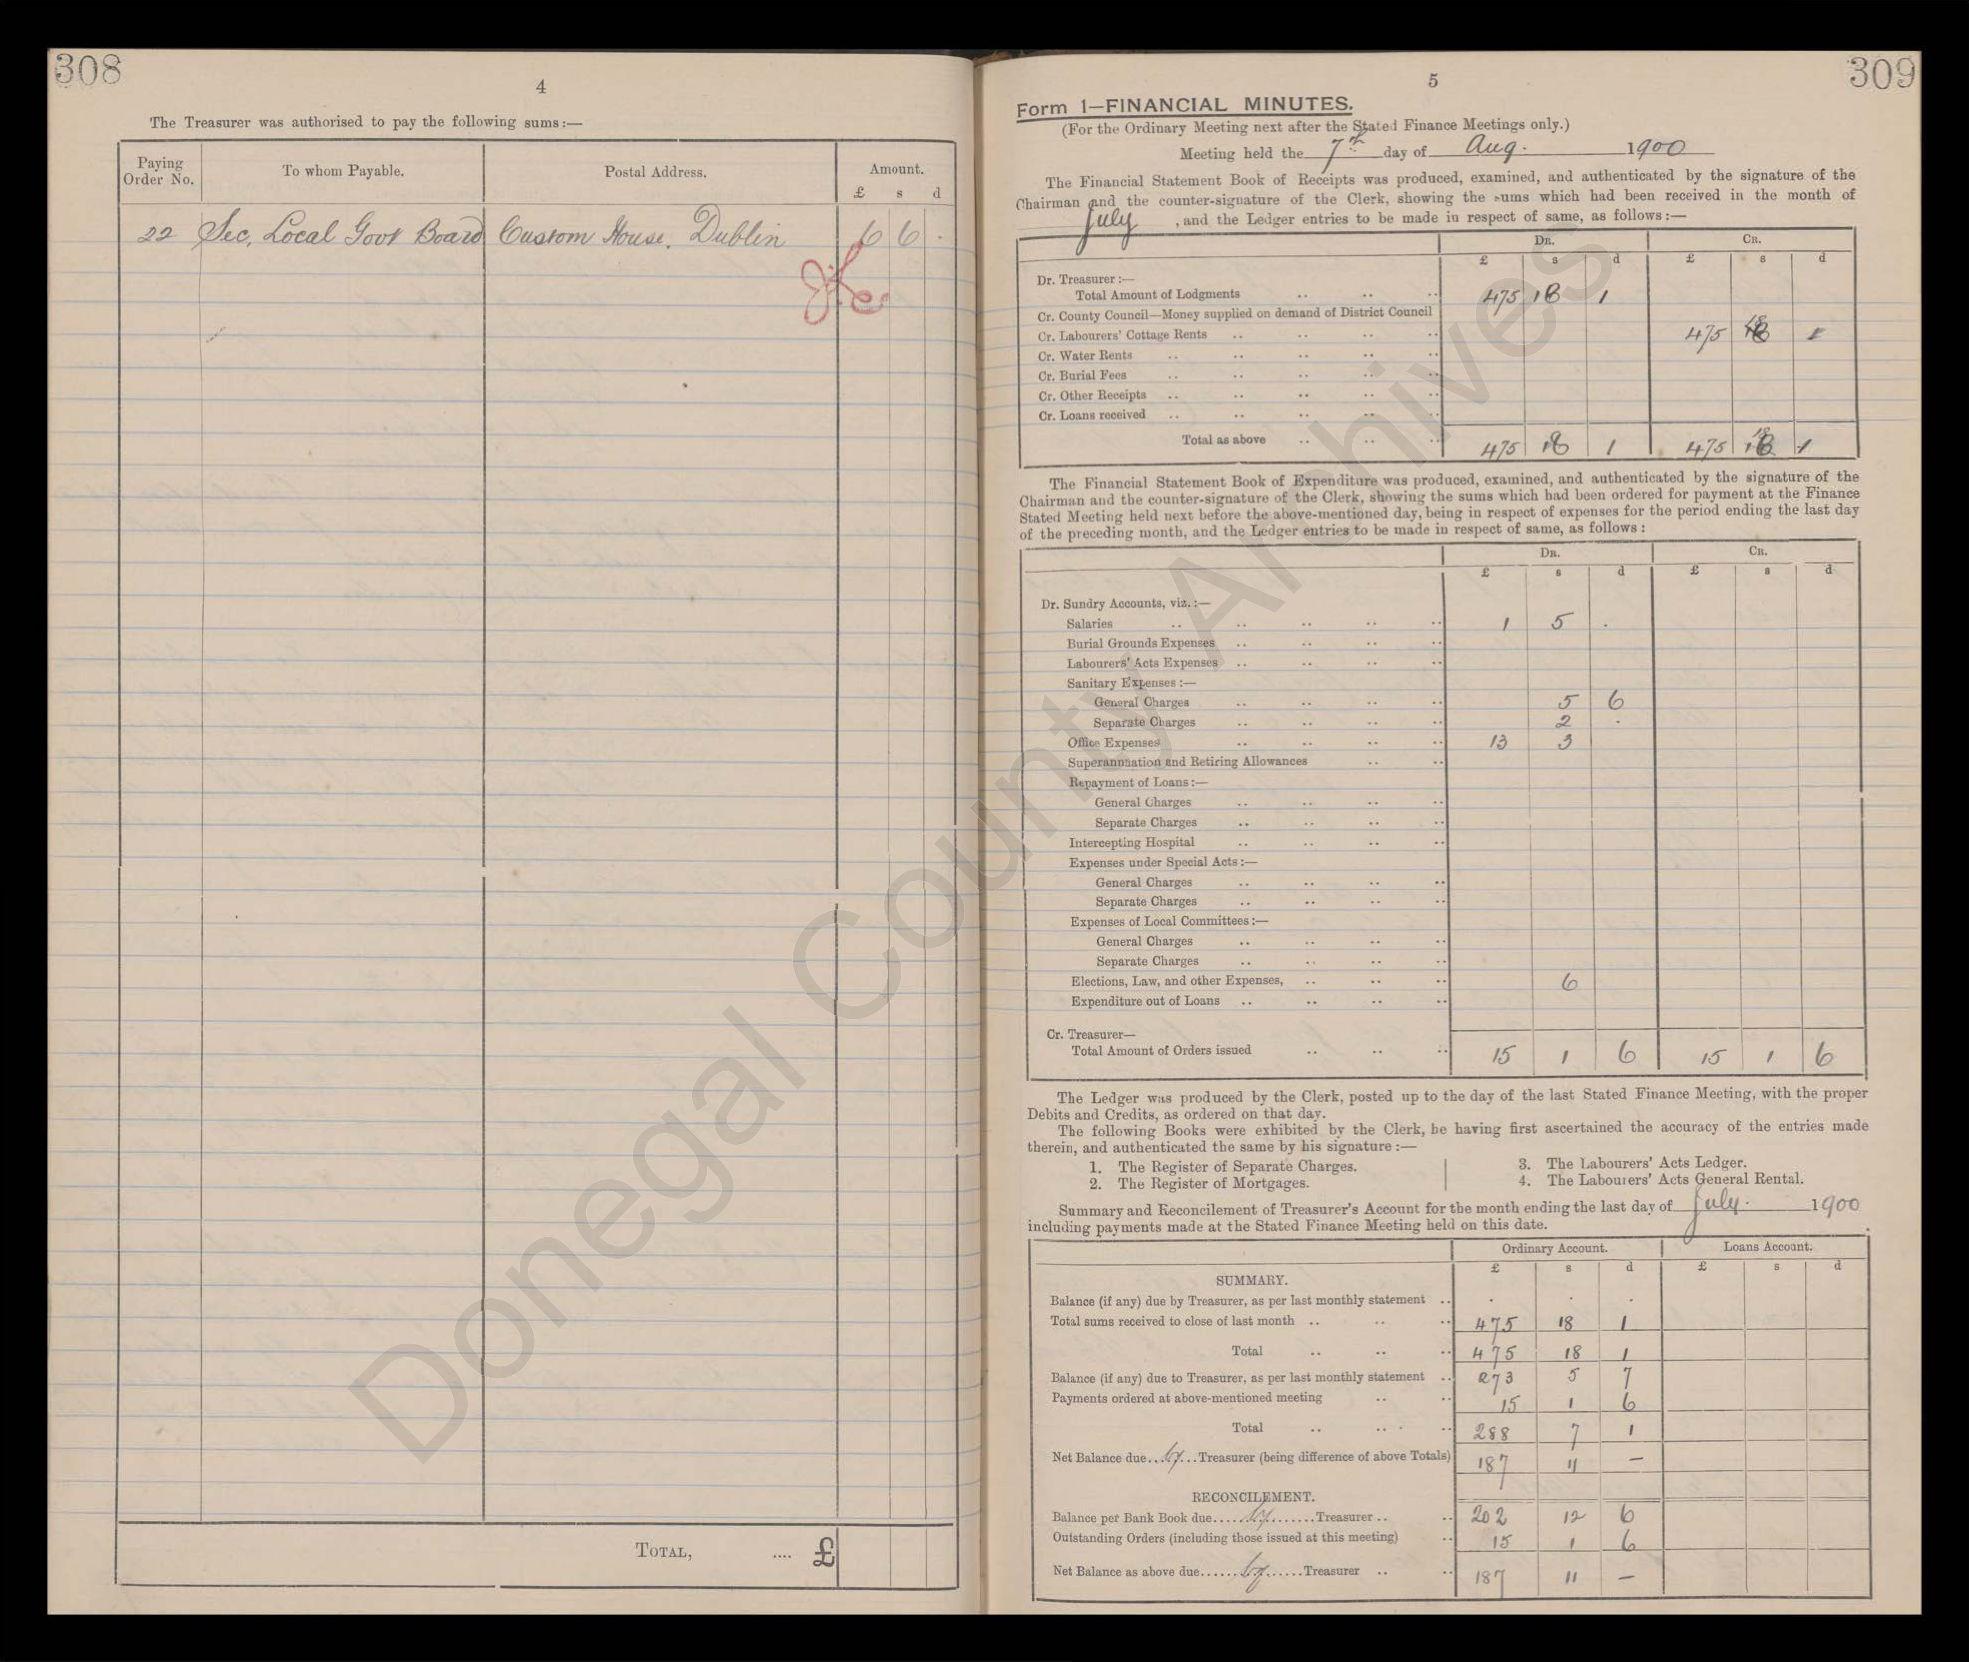 308
4
The Treasurer was authorised to pay the following sums:—
Paying Order No. To whom Payable. Postal Address. Amount.
£ s d
22 Sec, Local Govt Board Custom House, Dublin 6 6 .
TOTAL, .... £
309
5
Form 1—FINANCIAL MINUTES.
(For the Ordinary Meeting next after the Stated Finance Meetings only.)
Meeting held the 7th day of Aug. 1900
The Financial Statement Book of Receipts was produced, examined, and authenticated by the signature of the
Chairman and the counter-signature of the Clerk, showing the sums which had been received in the month of
July , and the Ledger entries to be made in respect of same, as follows:—
DR. CR.
£ s d £ s d
Dr. Treasurer:—
Total Amount of Lodgments .. .. .. 475 18 1
Cr. County Council—Money supplied on demand of District Council
Cr. Labourers' Cottage Rents .. .. .. .. 475 18 1
Cr. Water Rents .. .. .. .. ..
Cr. Burial Fees .. .. .. .. ..
Cr. Other Receipts .. .. .. .. ..
Cr. Loans received .. .. .. .. ..
Total as above .. .. .. 475 18 1 475 18 1
The Financial Statement Book of Expenditure was produced, examined, and authenticated by the signature of the
Chairman and the counter-signature of the Clerk, showing the sums which had been ordered for payment at the Finance
Stated Meeting held next before the above-mentioned day, being in respect of expenses for the period ending the last day
of the preceding month, and the Ledger entries to be made in respect of same, as follows:
DR. CR.
£ s d £ s d
Dr. Sundry Accounts, viz.:—
Salaries .. .. .. .. .. 1 5 .
Burial Grounds Expenses .. .. .. ..
Labourers' Acts Expenses .. .. .. ..
Sanitary Expenses:—
General Charges .. .. .. .. 5 6
Separate Charges .. .. .. .. 2 .
Office Expenses .. .. .. .. 13 3
Superannuation and Retiring Allowances .. ..
Repayment of Loans:—
General Charges .. .. .. ..
Separate Charges .. .. .. ..
Intercepting Hospital .. .. .. ..
Expenses under Special Acts:—
General Charges .. .. .. ..
Separate Charges .. .. .. ..
Expenses of Local Committees:—
General Charges .. .. .. ..
Separate Charges .. .. .. ..
Elections, Law, and other Expenses, .. .. .. 6
Expenditure out of Loans .. .. .. ..
Cr. Treasurer—
Total Amount of Orders issued .. .. .. 15 1 6 15 1 6
The Ledger was produced by the Clerk, posted up to the day of the last Stated Finance Meeting, with the proper
Debits and Credits, as ordered on that day.
The following Books were exhibited by the Clerk, he having first ascertained the accuracy of the entries made
therein, and authenticated the same by his signature:—
1. The Register of Separate Charges. 3. The Labourers' Acts Ledger.
2. The Register of Mortgages. 4. The Labourers' Acts General Rental.
Summary and Reconcilement of Treasurer's Account for the month ending the last day of July. 1900
including payments made at the Stated Finance Meeting held on this date.
Ordinary Account. Loans Account.
£ s d £ s d
SUMMARY.
Balance (if any) due by Treasurer, as per last monthly statement .. . . .
Total sums received to close of last month .. .. .. 475 18 1
Total .. .. .. 475 18 1
Balance (if any) due to Treasurer, as per last monthly statement .. 273 5 7
Payments ordered at above-mentioned meeting .. .. 15 1 6
Total .. .. .. 288 7 1
Net Balance due...by...Treasurer (being difference of above Totals) 187 11 —
RECONCILEMENT.
Balance per Bank Book due.....by.......Treasurer .. .. 202 12 6
Outstanding Orders (including those issued at this meeting) .. 15 1 6
Net Balance as above due.......by......Treasurer .. .. 187 11 —
Donegal County Archives